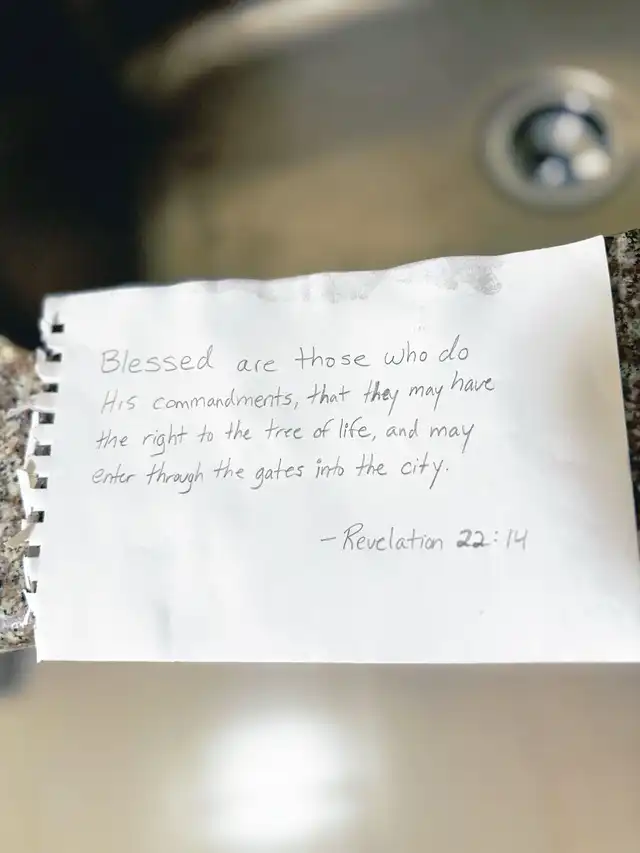 Blessed are those who do
His commandments, that they may have
the right to the tree of life, and may
enter through the gates into the city.
- Revelation 22:14